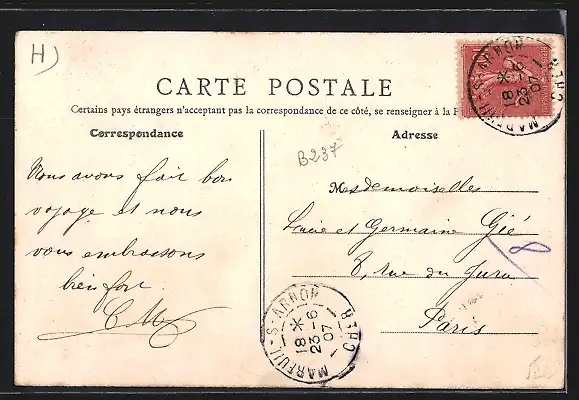 H)
CARTE POSTALE
Certains pays étrangers n'acceptant pas la correspondance de ce côté, se renseigner à la
Correspondance
Adresse
B237
Nous avons fait bon
voyage et nous
vous embrassons
bien fort.
Mesdemoiselles
Lucie et Germaine Gié
8, rue du Jura
Paris
8
MAREUIL-S-ARNON
CHER
18 *
23-6
07
MAREUIL-S-ARNON
CHER
18 *
23-6
07